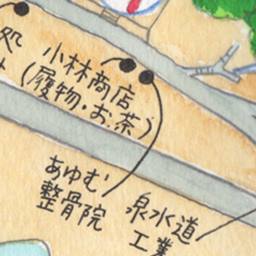 処
小林商店
(履物・お茶)
あゆむ
整骨院
泉水道
工業